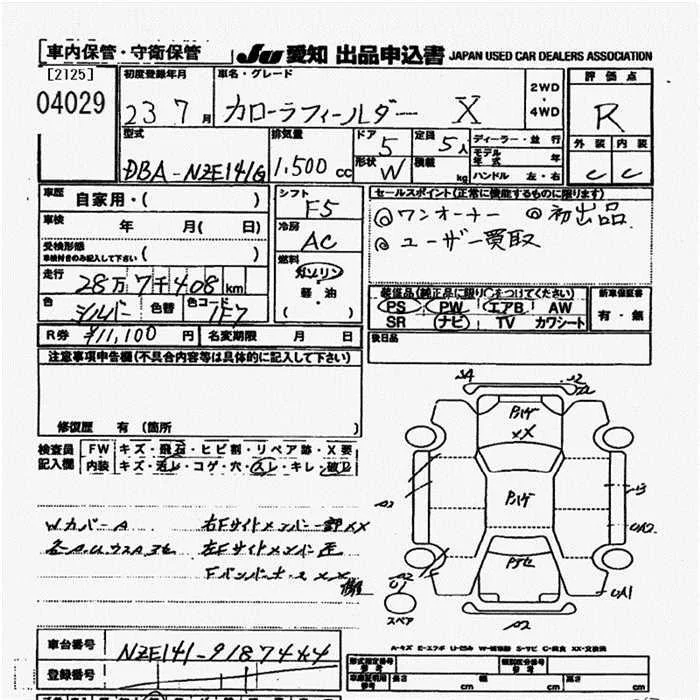 車内保管・守衛保管 JU 愛知 出品申込書 JAPAN USED CAR DEALERS ASSOCIATION
[2125] 初度登録年月 車名・グレード 2WD・4WD 評価点
04029 23 7月 カローラフィールダー X R
型式 排気量 ドア 5 定員 5人 ディーラー・並行 外装 内装
DBA-NZE141G 1,500cc 形状 W 積載 kg モデル年式 年 ハンドル 左・右 C C
車歴 自家用・( ) シフト F5 セールスポイント(正常に機能するものに限ります)
車検 年 月( 日) 冷房 AC ◎ワンオーナー ◎初出品
受検形態 車検付きのみ記入して下さい ( ) 燃料 ガソリン ◎ユーザー買取
走行 28万7千408km 軽・油
色 シルバー 色替 色コード 1F7 ( )
装備品(純正品に限り○をつけてください) 新車保証書
PS PW エアB AW 有・無
SR ナビ TV カワシート
R券 ¥11,100円 名変期限 月 日 後日品
注意事項申告欄(不具合内容等は具体的に記入して下さい)
修復歴 有 (箇所 )
検査員記入欄 FW キズ・飛石・ヒビ割・リペア跡・X要
内装 キズ・汚レ・コゲ・穴・スレ・キレ・破レ
WカバーA 右Fサイドメンバー一部XX
左Fサイドメンバー
A2
スペア
A-キズ E-エクボ U-凹ミ W-補修跡 S-サビ C-腐食 XX-交換済
車台番号 NZE141-9187444
登録番号
形式指定番号 参考 類別区分番号 参考
車庫証明用 参考 長さ cm 幅 cm 高さ cm